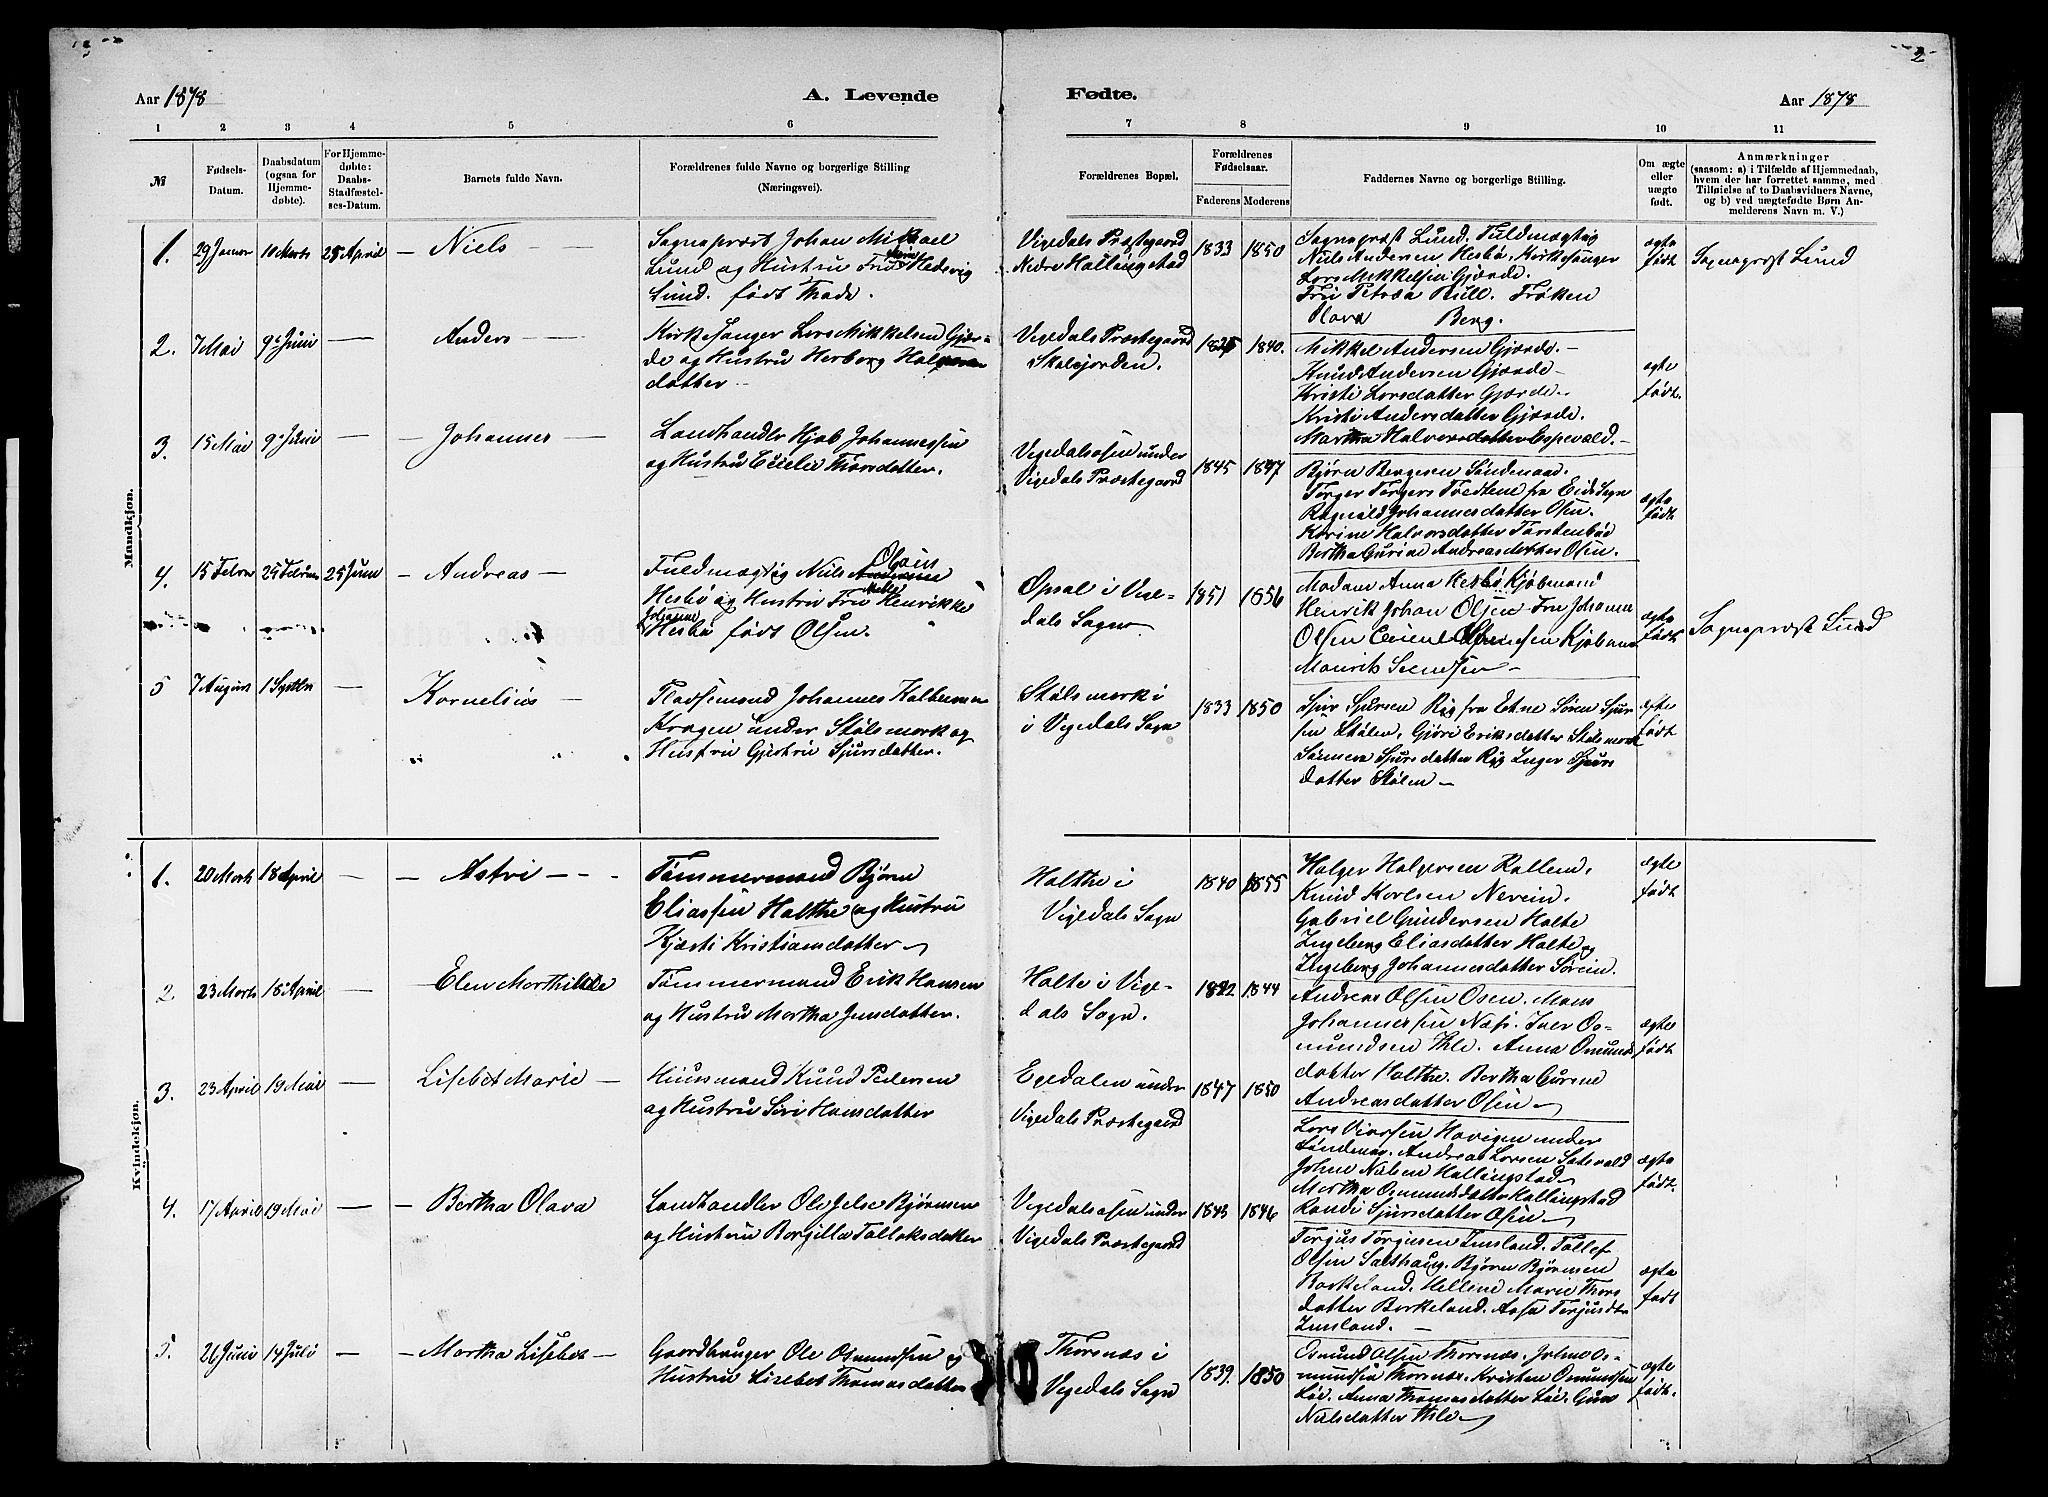 2
Aar 1878
A. Levende
Fødte.
Aar 1878
1 2 3 4 5 6 7 8 9 10 11
№
Fødsels-
Datum.
Daabsdatum
(ogsaa for
Hjemme-
døbte).
For Hjemme-
døbte:
Daabs-
Stadfæstel-
ses-Datum.
Barnets fulde Navn.
Forældrenes fulde Navne og borgerlige Stilling
(Næringsvei).
Forældrenes Bopæl.
Forældrenes
Fødselsaar.
Faderens Moderens
Faddernes Navne og borgerlige Stilling.
Om ægte
eller
uægte
født.
Anmærkninger
(saasom: a) i Tilfælde af Hjemmedaab,
hvem der har forrettet samme, med
Tilføielse af to Daabsvidners Navne,
og b) ved uægtefødte Børn An-
melderens Navn m. V.)
Mandkjøn.
1. 29 Januar 10 Marts 28 April — Niels — —
Sognepræst Johan Mikael
Lund og Hustru Fru Hedevig
Lund. født Thode.
Vigedals Præstegaard
Nedre Hallingstad
1833 1850
Sognepræst Lund. Fuldmægtig
Niels Andersen Hesbø. Kirkesanger
Lars Mikkelsen Gjærde.
Fru Petrea Bull. Frøken
Olava Berg.
ægte
født
Sognepræst Lund
2. 7 Mai 9 Juni — Anders —
Kirkesanger Lars Mikkelsen Gjær-
de og Hustru Herborg
datter —
Vigedals Præstegaard
Skolejorden.
1825 1840.
Mikkel Andersen Gjærde. —
Knud Andersen Gjærde —
Kristi Larsdatter Gjærde.
Kristi Andersdatter Gjærde.
Martha Halvorsdatter Espevold. —
ægte
født.
3. 15 Mai 9 Juni — — Johannes —
Landhandler Hjab Johannessen
og Hustru Cecelie Thorsdatter.
Vigedalsosen under
Vigedals Præstegaard
1845 1847
Bjørn Børgesen Søndenaa.
Torger Torgers Tvedtene fra Eids Sogn
Ragnald Johannesdatter Osen.
Karine Halvorsdatter Torstenbø
Bertha Gurine Andreasdatter Osen.
ægte
født
4. 15 Febru 25 Februar 25 Juni — Andreas —
Fuldmægtig Niels Olaus
Hesbø og Hustru Fru Henrikke
Johanne
Hesbø født Olsen.
Opsal i Vige-
dals Sogn
1851 1856
Madam Anna Hesbø Kjøbmand
Henrik Johan Olsen Fru Johanne
Olsen
Maurits Svendsen —
ægte
født
Sognepræst Lund
5 7 August 1 Septbr — Kornelius —
Pladsemand Johannes
Kragen under Stølsmark og
Hustru Gjertru Sjursdatter.
Stølsmark i
i Vigedals Sogn
1833 1850
Sjur Sjursen Rig fra Etne Søren Sjur-
sen Stølen, Gjøri Eriksdatter Stølsmark
Sjursdatter Rig Inger Sjurs
datter Stølen —
ægte
født
Kvindekjøn.
1. 20 Marts 18 April — — Astri — — —
Tømmermand Bjørn
Eliassen Halthe og Hustru
Kjersti Kristiansdatter
Halthe i
Vigedals Sogn
1840 1855
Holger Holgersen Rallem.
Knud Karlsen Nerein.
Gabriel Gundersen Halte
Ingeborg Eliasdatter Halte og
Ingeborg Johannesdatter Sørein.
ægte
født
2 23 Marts 18 April — — Elen Marthilde
Tømmermand Erik Hansen
og Hustru Martha Jensdatter.
Halte i Vige-
dals Sogn.
1822 1844
Andreas Olsen Osen. Mons
Johannessen Næs. Iver Os-
mundsen Thle. Anna Osmunds
datter Halthe. Bertha Gurine
Andreasdatter Osen
ægte
født
3. 23 April 19 Mai — Lisebet Marie —
Huusmand Knud Pedersen
og Hustru Siri Hansdatter
Egedalen under
Vigedals Præstegaard
1847 1850
Lars Havigen under
Søndenaa. Andreas Larsen
Johan Nielsen Hallingstad
Martha Osmundsdatter Hallingstad
Randi Sjursdatter Osen
ægte
født.
4. 17 April 19 Mai — — Bertha Olava
Landhandler Ole Jelse Bjørnsen
og Hustru Borgilla Tollaksdatter
Vigedalsosen under
Vigedals Præstegaard
1843 1846
Torjus Torgisen Imsland. Tollef
Olsen Salthaug. Bjørn Bjørnsen
Birkeland. Hellene Marie Thors
datter Birkeland. Aasa Terjusdtr
Imsland. —
ægte
født
5. 26 Juni 14 Juli — — Martha Lisebet —
Gaardbruger Ole Osmundsen og
Hustru Lisebet Thomasdatter
Thorsnæs i
Vigedals Sogn
1839. 1850
Osmund Olsen Thorsnæs. Johne Os-
mundsen Thorsnæs. Kristen Osmundsen
Løé. Anna Thomasdatter Løé. Guro
Nielsdatter Thle
ægte
født.